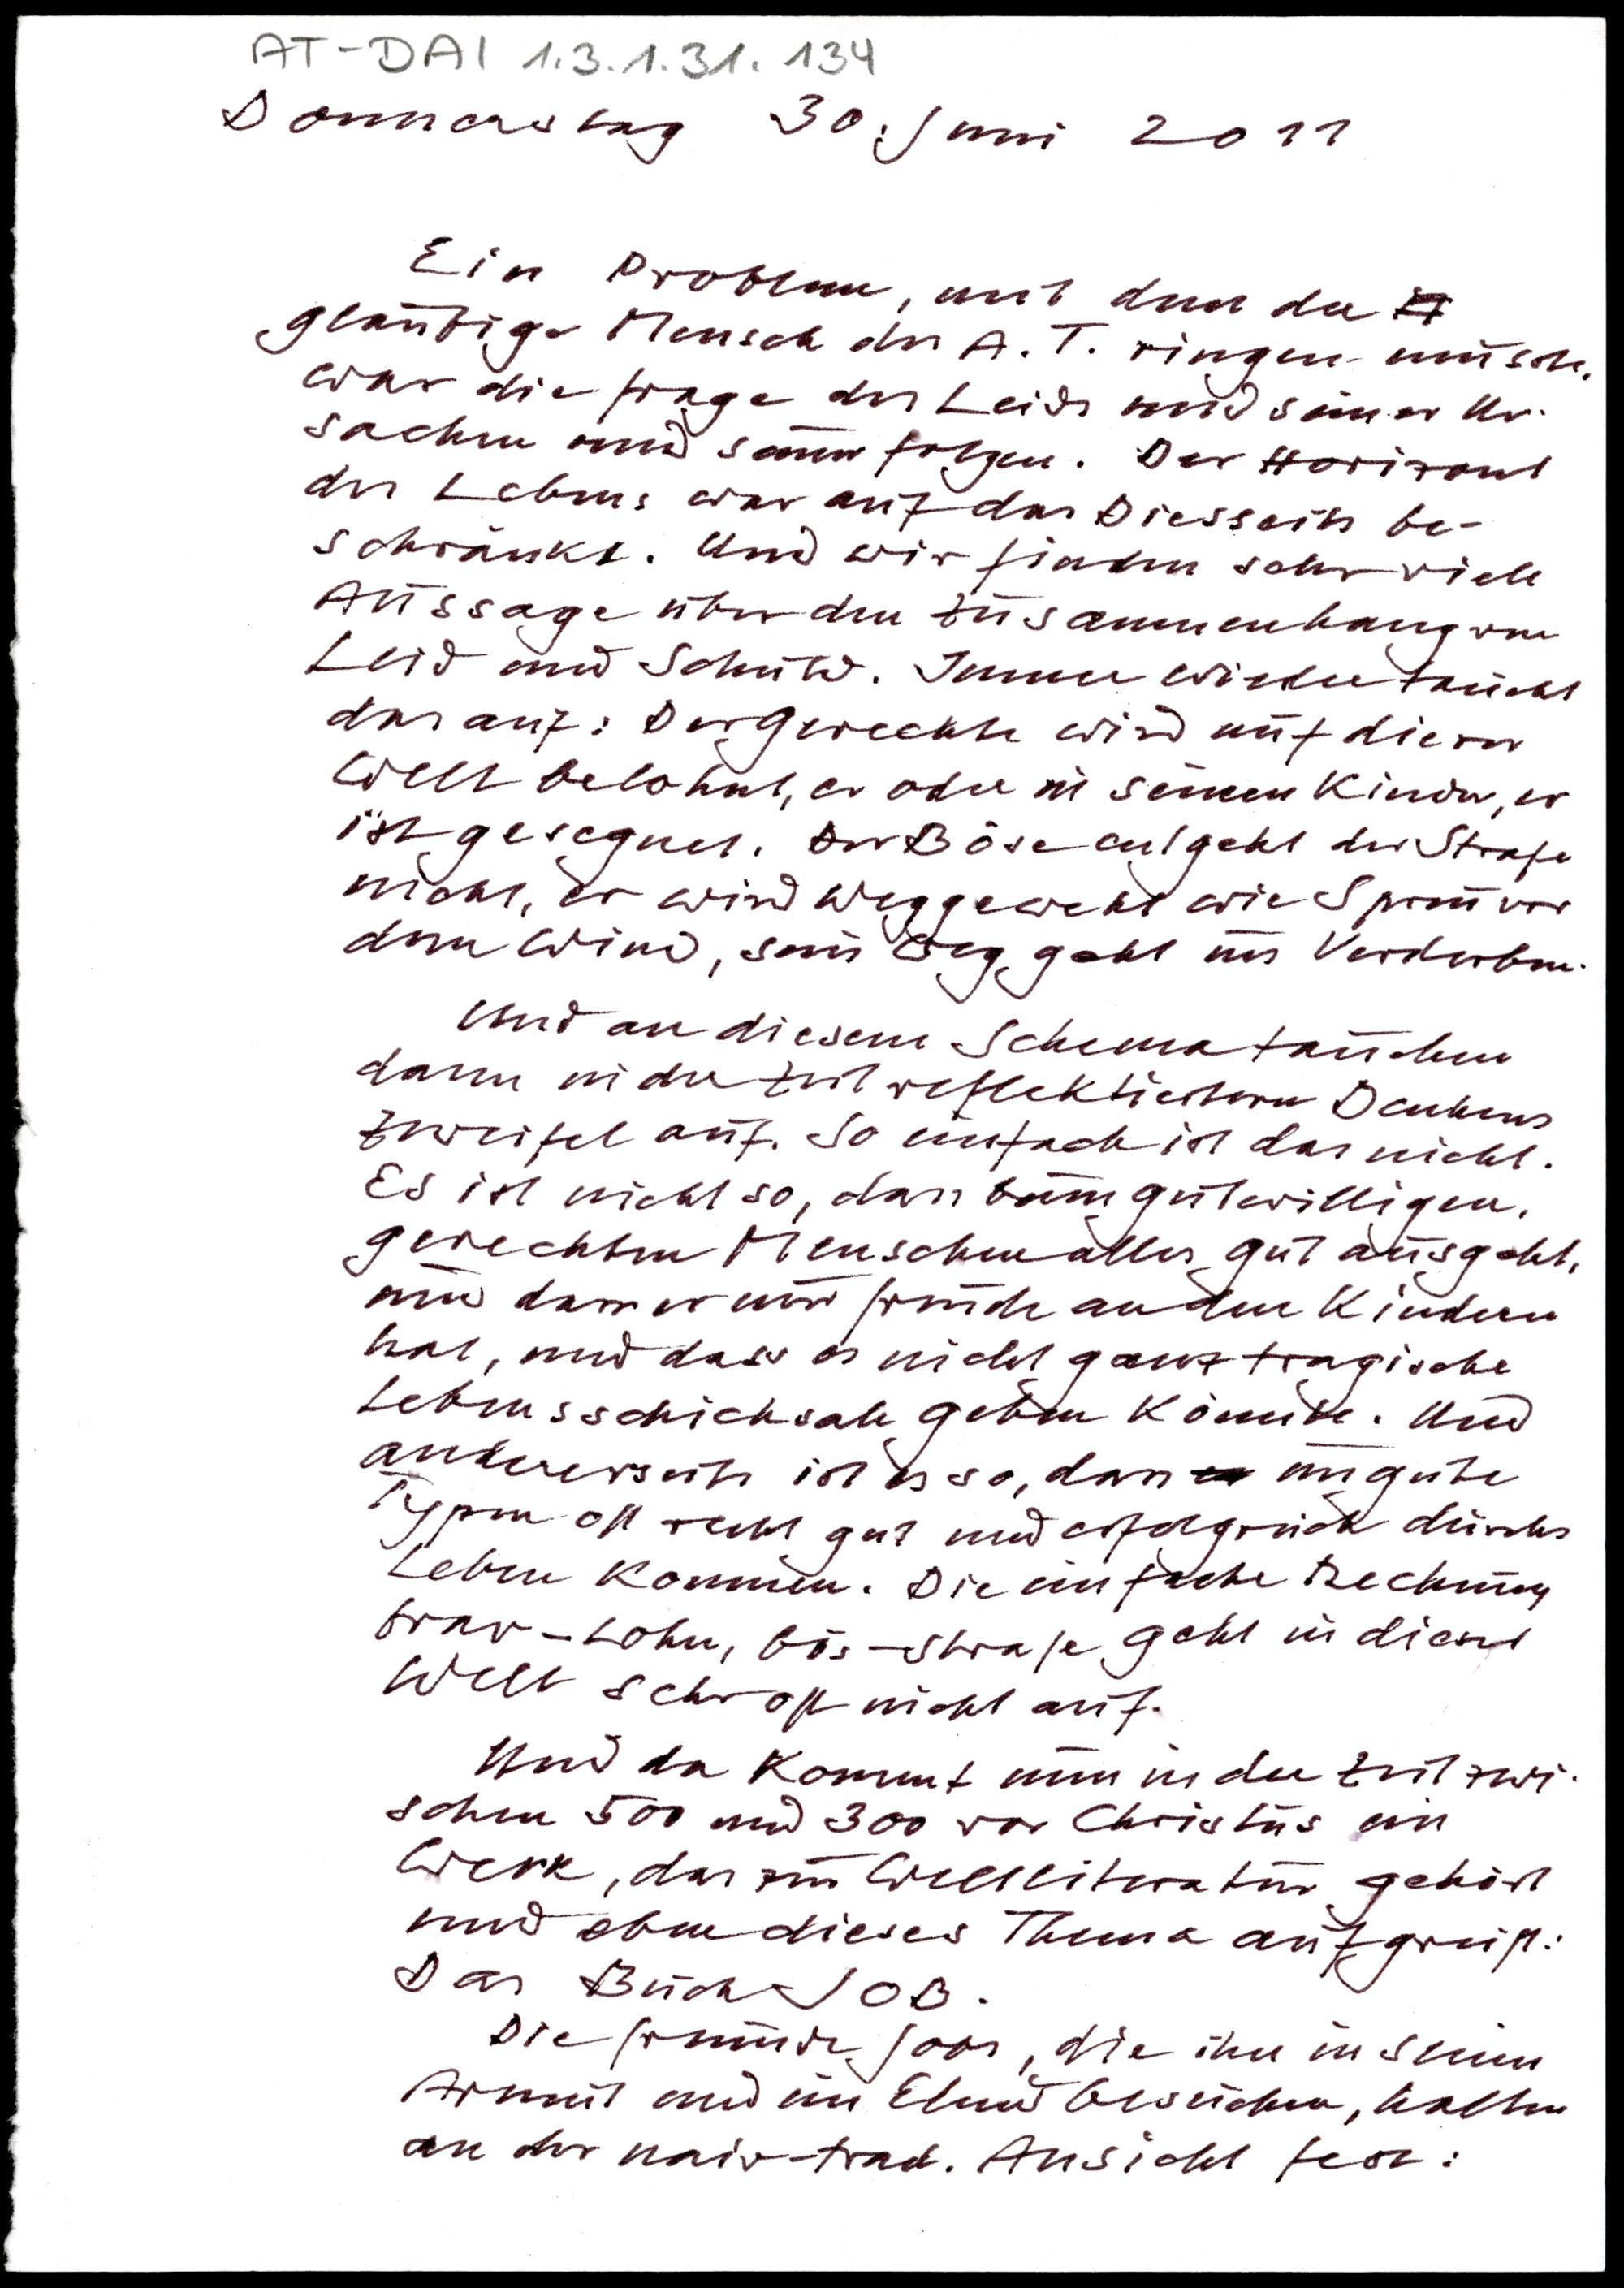 AT-DAI 1.3.1.31.134
Donnerstag 30. Juni 2011
Ein Problem, mit dem der
gläubige Mensch des A.T. ringen musste,
war die Frage des Leids und seiner Ur-
sachen und seiner Folgen. Der Horizont
des Lebens war auf das Diesseits be-
schränkt. Und wir finden sehr viele
Aussage über den Zusammenhang von
Leid und Schuld. Immer wieder taucht
das auf: Der Gerechte wird auf dieser
Welt belohnt, er oder in seinen Kinder, er
ist gesegnet. Der Böse entgeht der Strafe
nicht, er wird weggeweht wie Spreu vor
dem Wind, sein Weg geht ins Verderben.
Und an diesem Schema tauchen
dann in der Zeit reflektierteren Denkens
Zweifel auf. So einfach ist das nicht.
Es ist nicht so, dass beim gutwilligen,
gerechten Menschen alles gut ausgeht,
und dass er nur Freude an den Kindern
hat, und dass es nicht ganz tragische
Lebensschicksale geben könnte. Und
andererseits ist es so, dass ungute
Typen oft recht gut und erfolgreich durchs
Leben kommen. Die einfache Rechnung
brav - Lohn, bös - Strafe geht in dieser
Welt sehr oft nicht auf.
Und da kommt nun in der Zeit zwi-
schen 500 und 300 vor Christus ein
Werk, das zur Weltliteratur gehört
und eben dieses Thema aufgreift:
Das Buch JOB.
Die Freunde Jobs, die ihn in seiner
Armut und im Elend besuchen, halten
an der naiv-trad. Ansicht fest: